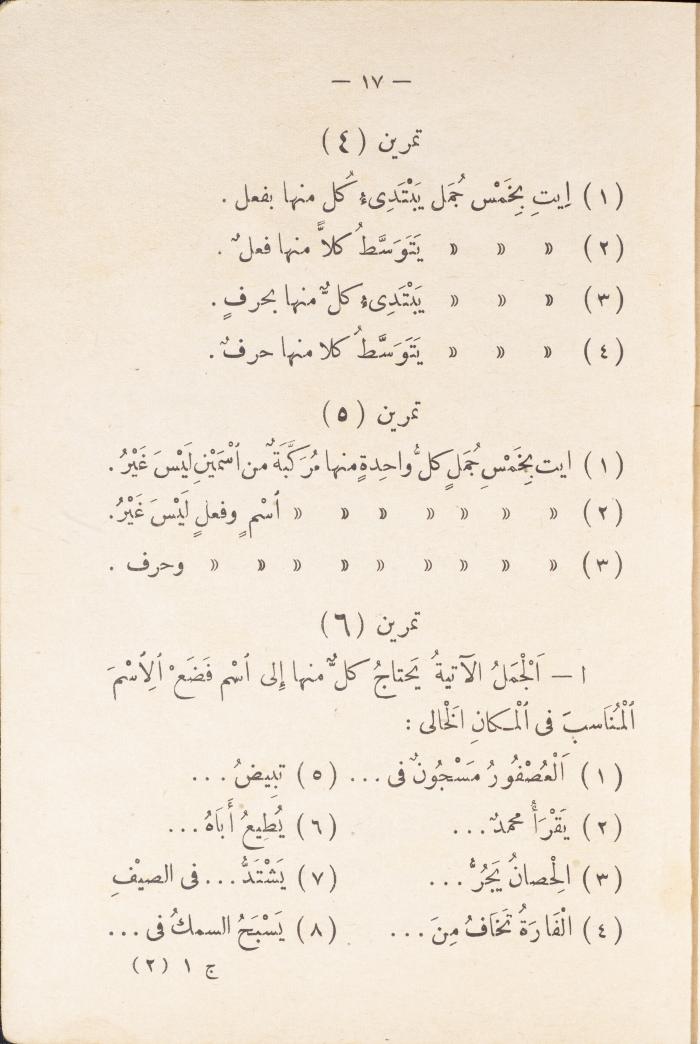 — ١٧ —
تمرين (٤)
(١) اِيتِ بِخَمْسِ جُمَل يَبْتَدِىءُ كُل منها بفعل .
(٢) » » » يَتَوَسَّطُ كلاًّ منها فعلٌ .
(٣) » » » يَبْتَدِىءُ كلٌّ منها بحرفٍ .
(٤) » » » يَتَوَسَّطُ كلا منها حرفٌ .
تمرين (٥)
(١) ايت بِخَمْسِ جُمَلٍ كلُّ واحِدةٍ منها مُرَكَّبَةٌ من ٱسْمَيْنِ لَيْسَ غَيْرُ .
(٢) » » » » » » » ٱسْمٍ وفعلٍ لَيْسَ غَيْرُ.
(٣) » » » » » » » » » وحرف .
تمرين (٦)
١ — اَلْجُمَلُ الآتيةُ يَحتاجُ كلٌّ منها إلى ٱسْم فَضَعْ ٱلِاسْمَ
ٱلْمُنَاسبَ فى ٱلْمكانِ الْخالى :
(١) اَلْعُصْفُورُ مَسْجُونٌ فى ... (٥) تبِيضُ ...
(٢) يَقْرَأُ محمدٌ ... (٦) يُطِيعُ أَبَاهُ ...
(٣) الحِصانُ يَجُرُّ ... (٧) يَشْتَدُّ ... فى الصيْفِ
(٤) الْفَارَةُ تَخَافُ مِنَ ... (٨) يَسْبَحُ السمكُ فى ...
ج ١ (٢)